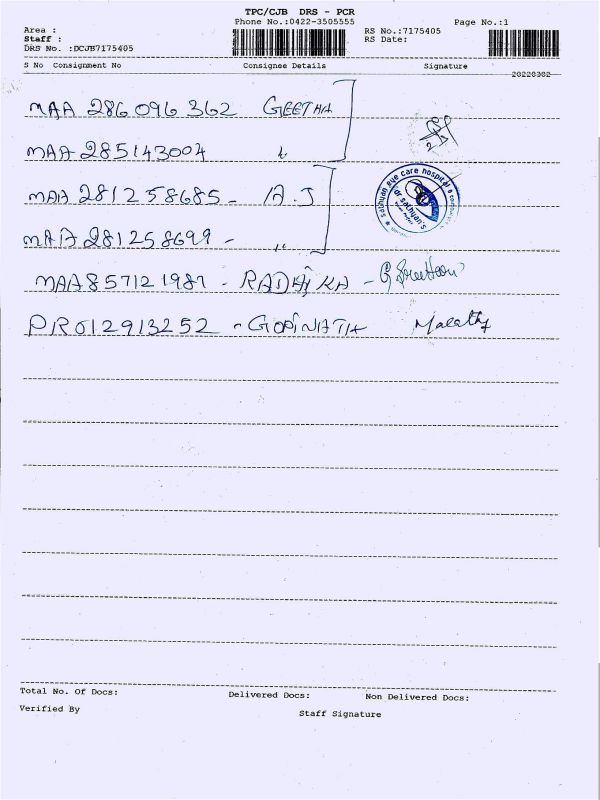 TPC/CJB DRS - PCR
Phone No.:0422-3505555
Page No.:1
Area :
Staff :
DRS No. :DCJB7175405
RS No.:7175405
RS Date:
S No Consignment No Consignee Details Signature
20220302
MAA 286096362 GEETHA
MAA 285143004 "
MAA 281258685 - A.J
MAA 281258699 - "
sathyan eye care hospital &
dr sathyan's
MAA857121987 - RADHIKA -
PRO12913252 - GOPINATH Malathy
Total No. Of Docs: Delivered Docs: Non Delivered Docs:
Verified By Staff Signature